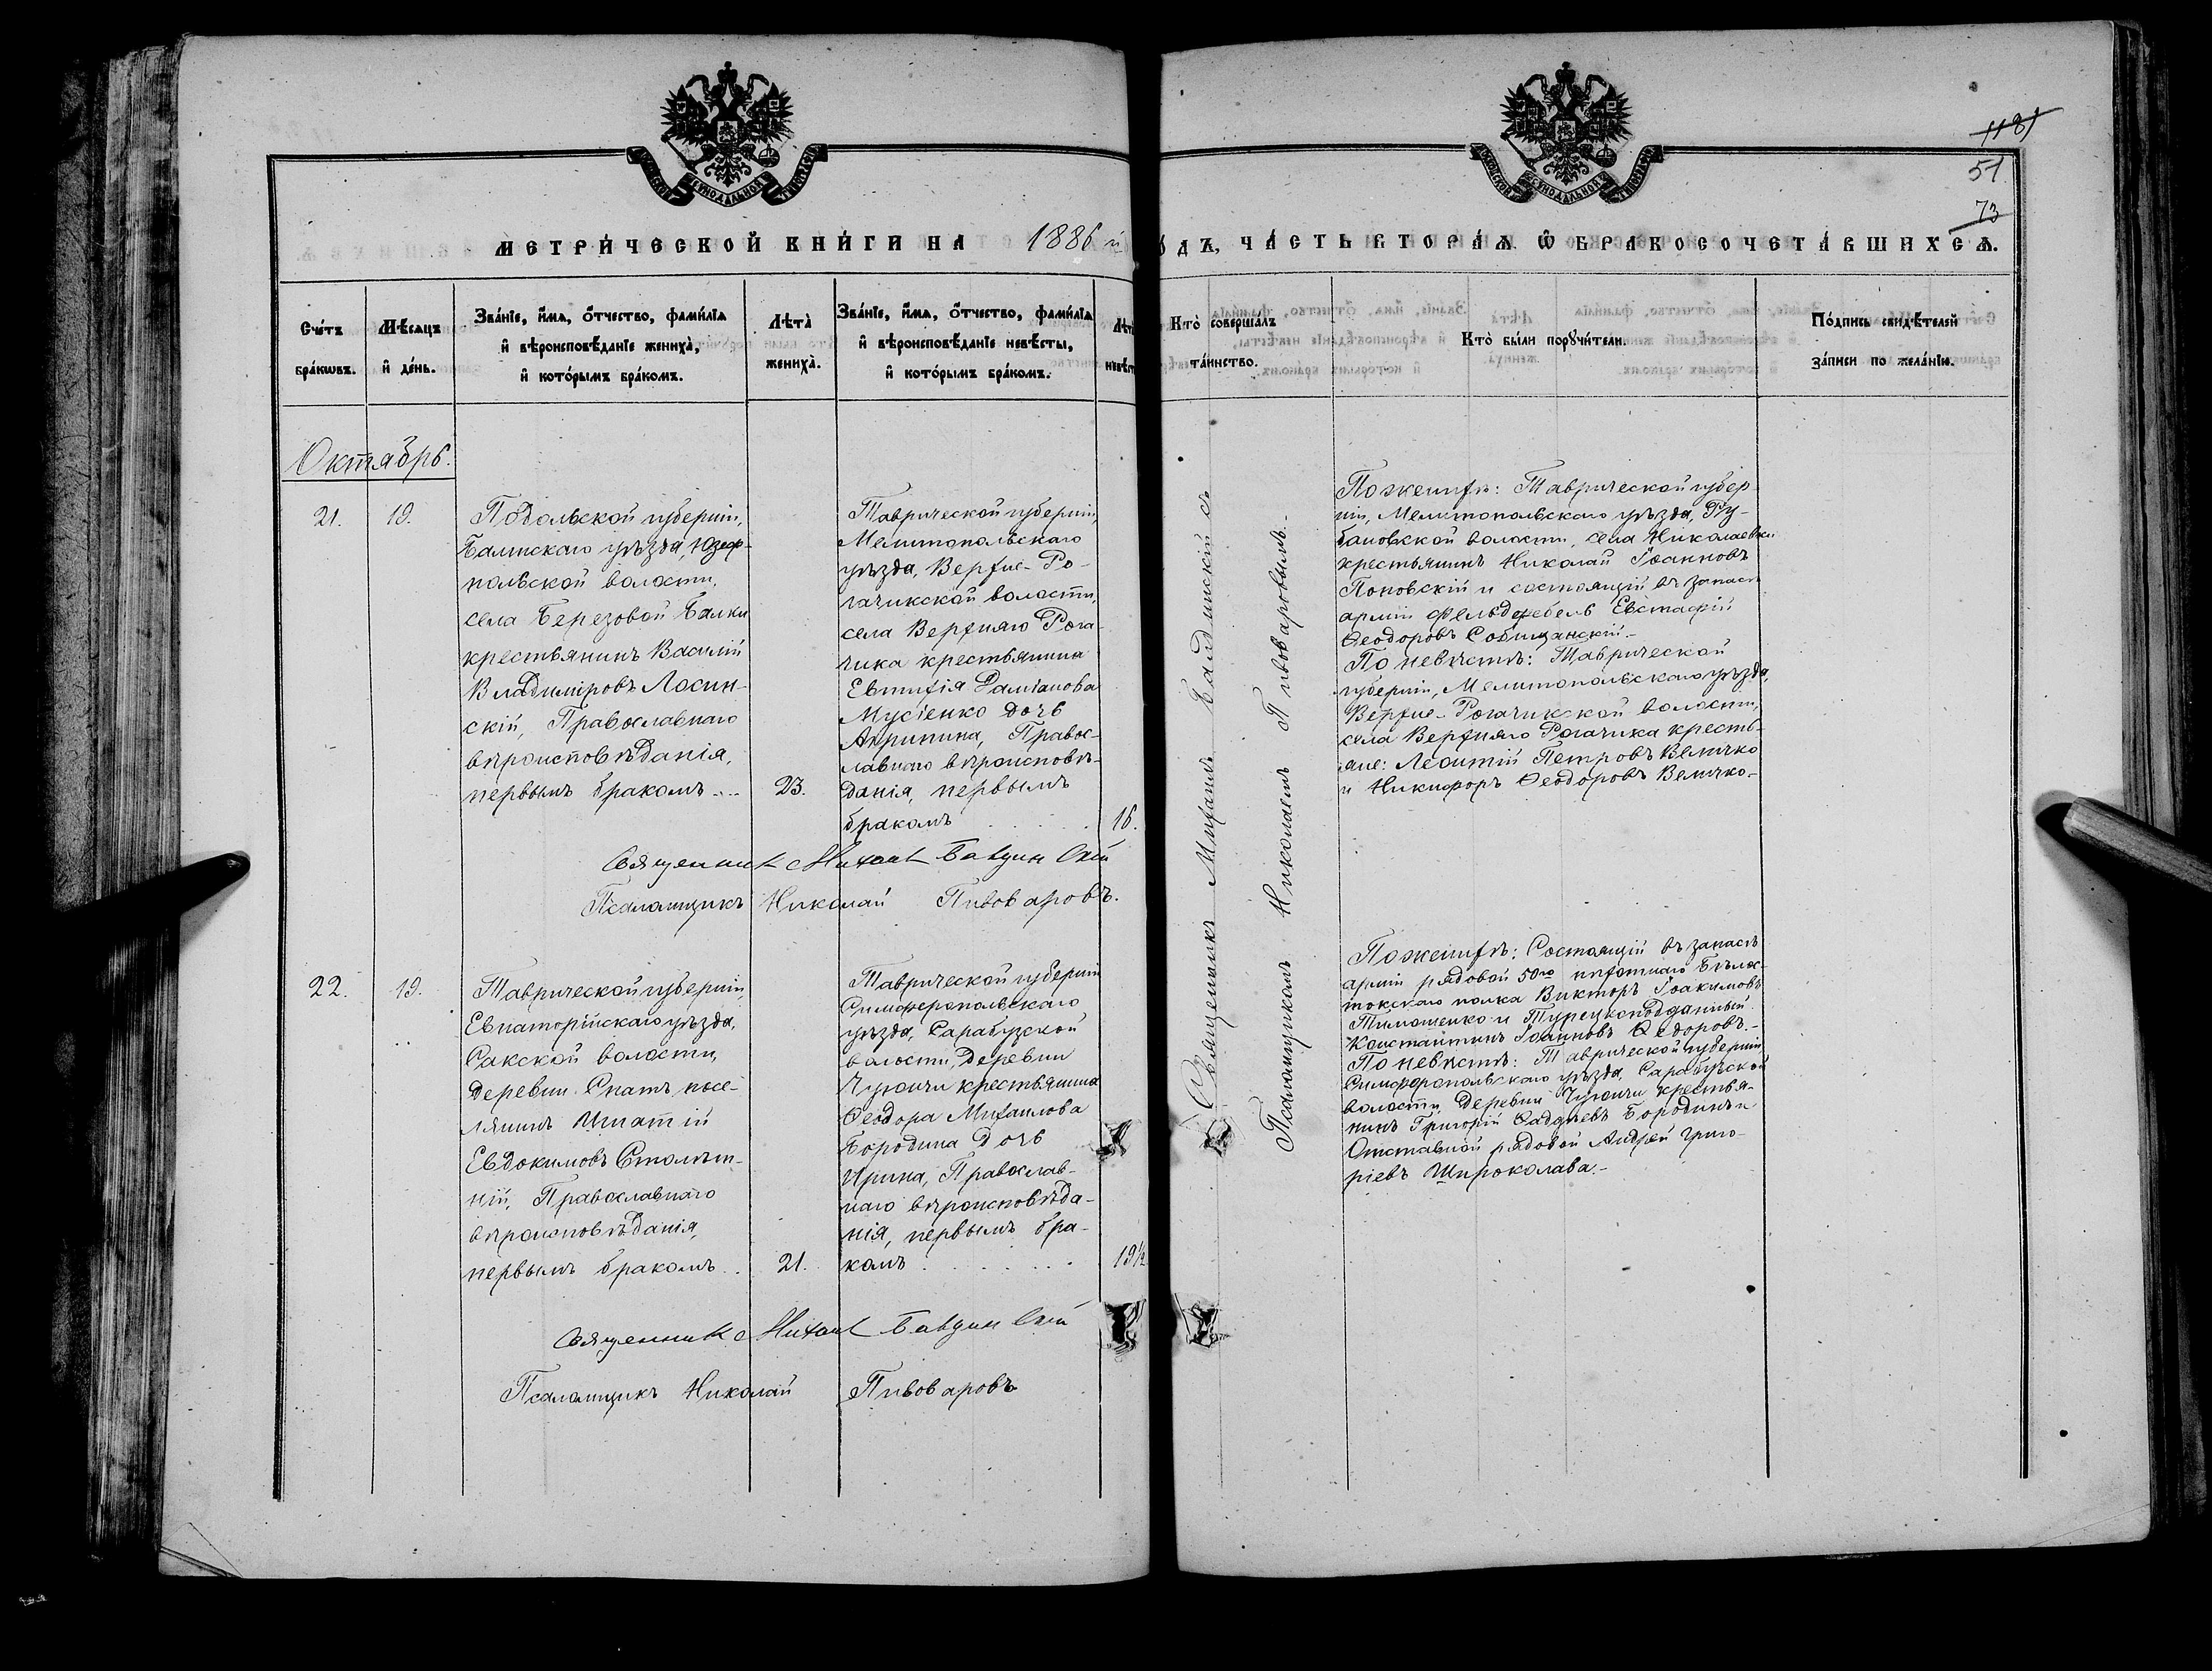 1181
51
73
МЕТРИ́ЧЕСКОЙ КНИ́ГИ НА 1886 й
ОДЪ, ЧА́СТЬ ВТОРА́Ѧ Ѡ БРАКОСОЧЕТА́ВШИХСѦ.
Сче́тъ
бра́кωвъ.
Мѣ́сѧцъ
и҆ де́нь.
Зва́нїе, и҆́мѧ, ѻ҆́тчество, фами́лїѧ
и҆ вѣроисповѣ́данїе жениха̀,
и҆ кото́рымъ бра́комъ.
Лѣта̀
жениха̀.
Зва́нїе, и҆́мѧ, ѻ҆́тчество, фами́лїѧ
и҆ вѣроисповѣ́данїе невѣ́сты,
и҆ кото́рымъ бра́комъ.
Лѣт
невѣст
Кто̀ соверша́лъ
та́инство.
Кто̀ бы́ли порꙋчи́тели.
По́дпись свидѣ́телей
за́писи по жела́нїю.
Октябрь.
21.
19.
Подольской губерніи,
Балтскаго уѣзда, Юзеф-
польской волости,
села Березовой Балки
крестьянинъ Василій
Владиміровъ Лосин-
скій, Православнаго
вѣроисповѣданія,
первымъ бракомъ...
23.
Таврической губерніи,
Мелитопольскаго
уѣзда, Верхне-Ро-
гачикской волости,
села Верхняго Рога-
чика крестьянина
Евтихія Даміанова
Мусіенко дочь
Акрипина, Правос-
лавнаго вѣроисповѣ-
данія, первымъ
бракомъ
16.
Священникъ Михаилъ Балдинскій съ
Псаломщикомъ Николаемъ Пивоваровымъ.-
По женихѣ: Таврической губер-
ніи, Мелитопольскаго уѣзда, Ру-
бановской волости, села Николаевки
крестьянинъ Николай Іоанновъ
Поповскій и состоящій въ запасѣ
арміи Фельдфебель Евстафій
Ѳеодоровъ Собищанскій.-
По невѣстѣ: Таврической
губерніи, Мелитопольскаго уѣзда,
Верхне-Рогачикской волости,
села Верхняго Рогачика кресть-
яне: Леонтій Петровъ Величко
и Никифоръ Ѳеодоровъ Величко.-
Священникъ Михаилъ
Псаломщикъ Николай Пивоваровъ.
22.
19.
Таврической губерніи,
Евпаторійскаго уѣзда,
Сакской волости,
деревни Спатъ посе-
лянинъ Игнатій
Евдокимовъ Столѣт-
ній, Православнаго
вѣроисповѣданія,
первымъ бракомъ..
21.
Таврической губерніи
Симферопольскаго
уѣзда, Сарабузской
волости, деревни
крестьянина
Ѳеодора Михаилова
Бородина дочь
Ирина, Православ-
наго вѣроисповѣда-
нія, первымъ бра-
комъ
19½
По женихѣ: Состоящій въ запасѣ
арміи рядовой 50го пѣхотнаго Бѣлос-
токскаго полка Викторъ Іоакимовъ
Тимошенко и Турецкоподданный
Константинъ Іоанновъ Ѳедоровъ.-
По невѣстѣ: Таврической губерніи,
Симферопольскаго уѣзда, Сарабузской
волости, деревни крестья-
нинъ Григорій Бородинъ и
Отставной рядовой Андрей Григо-
ріевъ Широколава.-
Священникъ Михаилъ
Псаломщикъ Николай Пивоваровъ